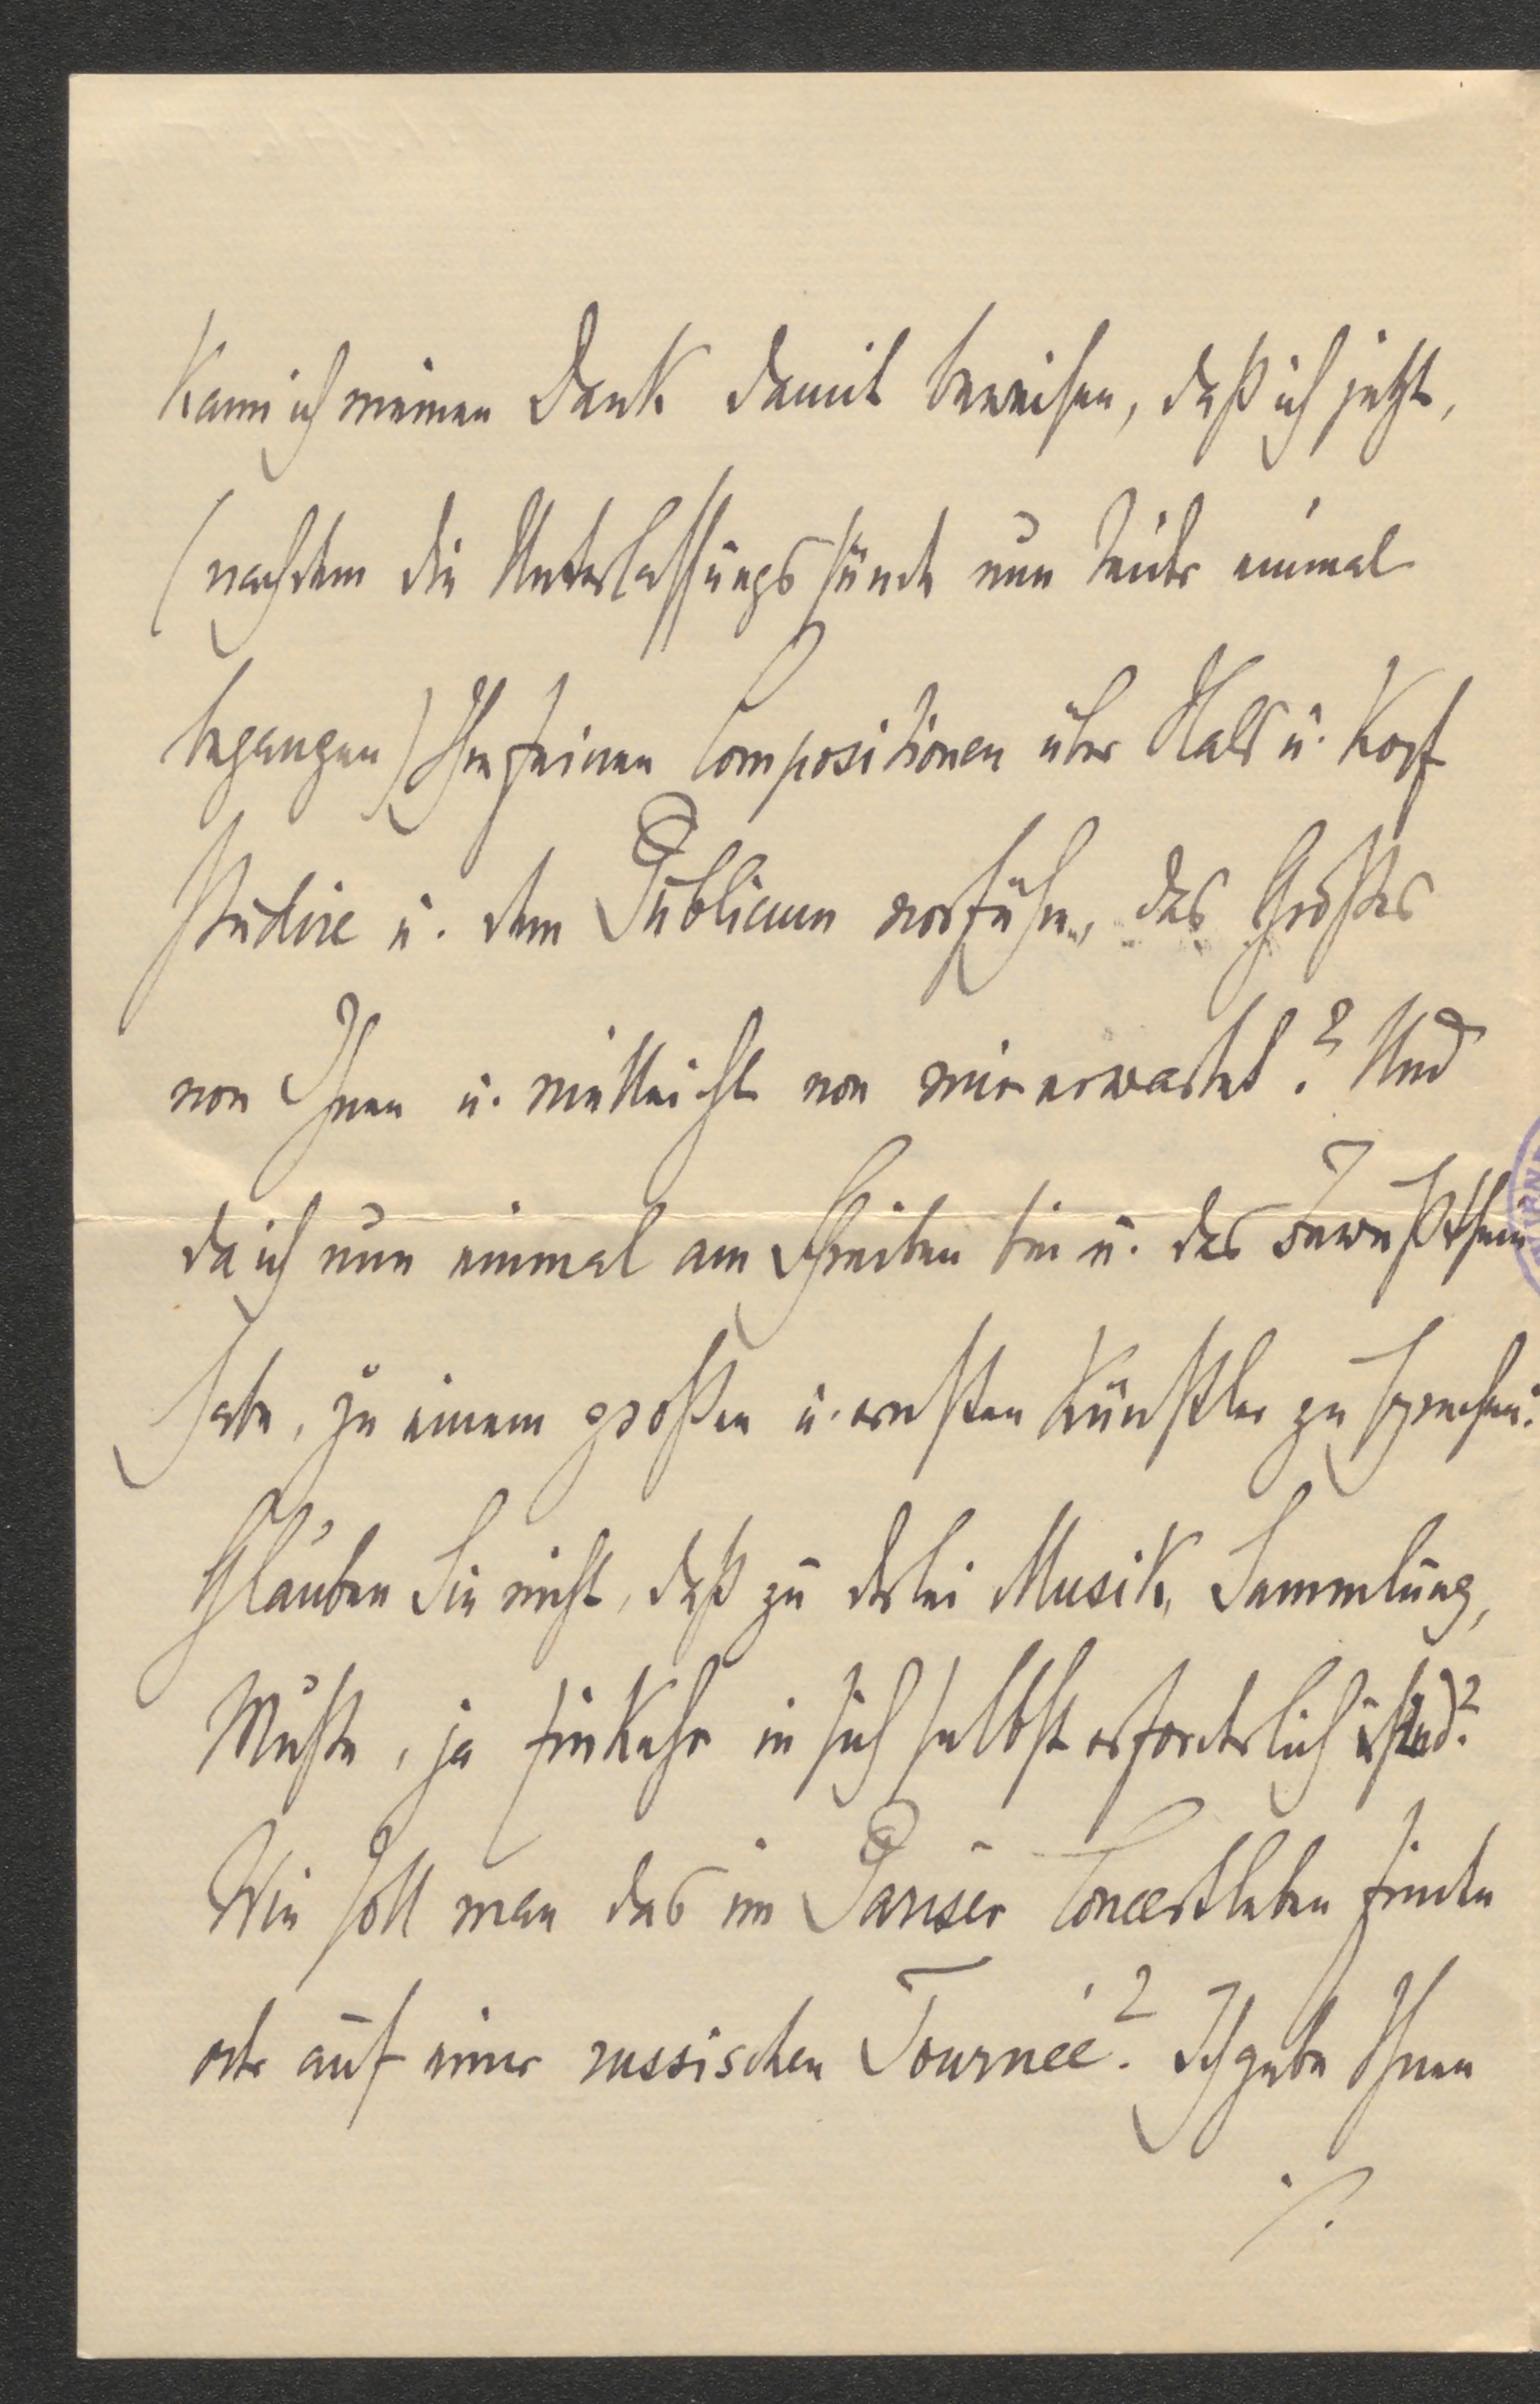 Kann ich meinen Dank damit beweisen, daß ich jetzt,
(nachdem die Unterlassungssünde nun leider einmal
begangen) Ihre feinen Compositionen über Hals u. Kopf
studire u. dem Publicum vorführe, das Großes
von Ihnen u. vielleicht von mir erwartet? Und
da ich nun einmal am Schreiben bin u. das Bewußtsein
habe, zu einem großen u. ernsten Künstler zu sprechen:
Glauben Sie nicht, daß zu derlei Musik, Sammlung,
Muße, ja Einkehr in sich selbst erforderlich sind?
Wie soll man das im Pariser Concertleben finden
oder auf einer russischen Tournée? Ich gebe Ihnen
./.